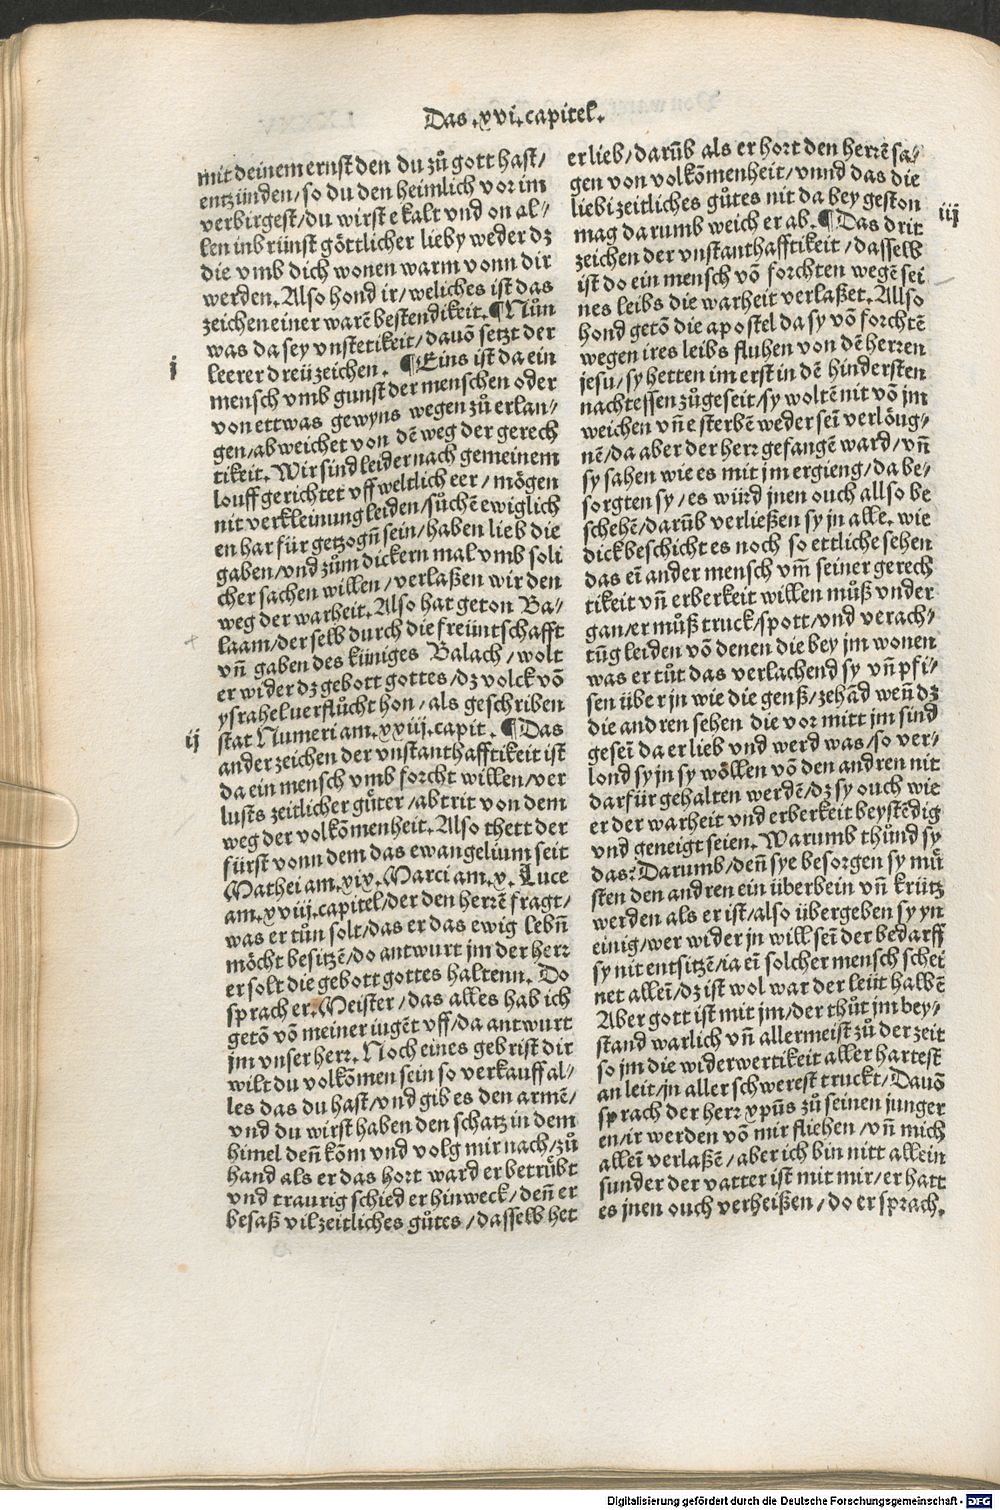 Das .xvi. capitel.
mit deinem ernst den du zů gott hast/
entzünden/so du den heimlich vor im
verbirgest/du wirst e kalt vnd on al⸗
len inbrünst göttlicher lieby weder dz
die vmb dich wonen warm vonn dir
werden. Also hond ir/weliches ist das
zeichen einer warē bestendikeit. ¶Nůn
was da sey vnstetikeit/dauō setzt der
i
leerer dreü zeichen. ¶Eins ist da ein
mensch vmb gunst der menschen oder
von ettwas gewyns wegen zů erlan⸗
gen/ab weichet von dē weg der gerech
tikeit. Wir sind leider nach gemeinem
louff gerichtet vff weltlich eer/mögen
nit verkleinung leiden/sůchē ewiglich
en har für getzogn̄ sein/haben lieb die
gaben/vnd zům dickern mal vmb soli
cher sachen willen/verlaßen wir den
weg der warheit. Also hat geton Ba⸗
laam/der selb durch die freüntschafft
vn̄ gaben des küniges Balach/wolt
er wider dz gebott gottes/dz volck vō
ysrahel uerflůcht hon/als geschriben
stat Numeri am .xxiij. capit. ¶Das
ij
ander zeichen der vnstanthafftikeit ist
da ein mensch vmb forcht willen/ver
lusts zeitlicher gůter/abtrit von dem
weg der volkōmenheit. Also thett der
fürst vonn dem das ewangelium seit
Mathei am .xix. Marci am .x. Luce
am .xviij. capitel/der den herrē fragt/
was er tůn solt/das er das ewig lebn̄
möcht besitzē/do antwurt jm der herr
er solt die gebott gottes haltenn. Do
sprach er. Meister/das alles hab ich
getō vō meiner iugēt vff/da antwurt
jm vnser herr. Noch eines gebrist dir
wilt du volkōmen sein so verkauff al⸗
les das du hast/vnd gib es den armē/
vnd du wirst haben den schatz in dem
himel den̄ kōm vnd volg mir nach/zů
hand als er das hort ward er betrůbt
vnd traurig schied er hinweck/den̄ er
besaß vil zeitliches gůtes/dasselb het
er lieb/darūb als er hort den herrē sa⸗
gen von volkōmenheit/vnnd das die
liebi zeitliches gůtes nit da bey geston
mag darumb weich er ab. ¶Das drit
iij
zeichen der vnstanthafftikeit/dasselb
ist do ein mensch vō forchten wegē sei
nes leibs die warheit verlaßet. Allso
hond getō die apostel da sy vō forchtē
wegen ires leibs fluhen von dē herren
jesu/sy hetten im erst in dē hindersten
nachtessen zůgeseit/sy woltē nit vō jm
weichen vn̄ e sterbē weder sei᷑ verlöug⸗
nē/da aber der herr gefangē ward/vn̄
sy sahen wie es mit jm ergieng/da be⸗
sorgten sy/es würd jnen ouch allso be
schehē/darūb verließen sy jn alle. wie
dick beschicht es noch so ettliche sehen
das ei᷑ ander mensch vm̄ seiner gerech
tikeit vn̄ erberkeit willen můß vnder
gan/er můß truck/spott/vnd verach⸗
tūg leiden vō denen die bey jm wonen
was er tůt das verlachend sy vn̄ pfi⸗
sen über jn wie die genß/zehād wen̄ dz
die andren sehen die vor mitt jm sind
gesei᷑ da er lieb vnd werd was/so ver⸗
lond sy jn sy wöllen vō den andren nit
darfür gehalten werdē/dz sy ouch wie
er der warheit vnd erberkeit beystēdig
vnd geneigt seien. Warumb thůnd sy
das? Darumb/den̄ sye besorgen sy mů
sten den andren ein überbein vn̄ krütz
werden als er ist/also übergeben sy yn
einig/wer wider jn will sei᷑ der bedarff
sy nit entsitzē/ia ei᷑ solcher mensch schei
net allei᷑/dz ist wol war der leüt halbē
Aber gott ist mit jm/der thůt jm bey⸗
stand warlich vn̄ allermeist zů der zeit
so jm die widerwertikeit aller hartest
an leit/jn aller schwerest truckt/Dauō
sprach der herr xpūs zů seinen junger
en/ir werden vō mir fliehen/vn̄ mich
allei᷑ verlaßē/aber ich bin nitt allein
sunder der vatter ist mit mir/er hatt
es jnen ouch verheißen/do er sprach.
Digitalisierung gefördert durch die Deutsche Forschungsgemeinschaft - DFG